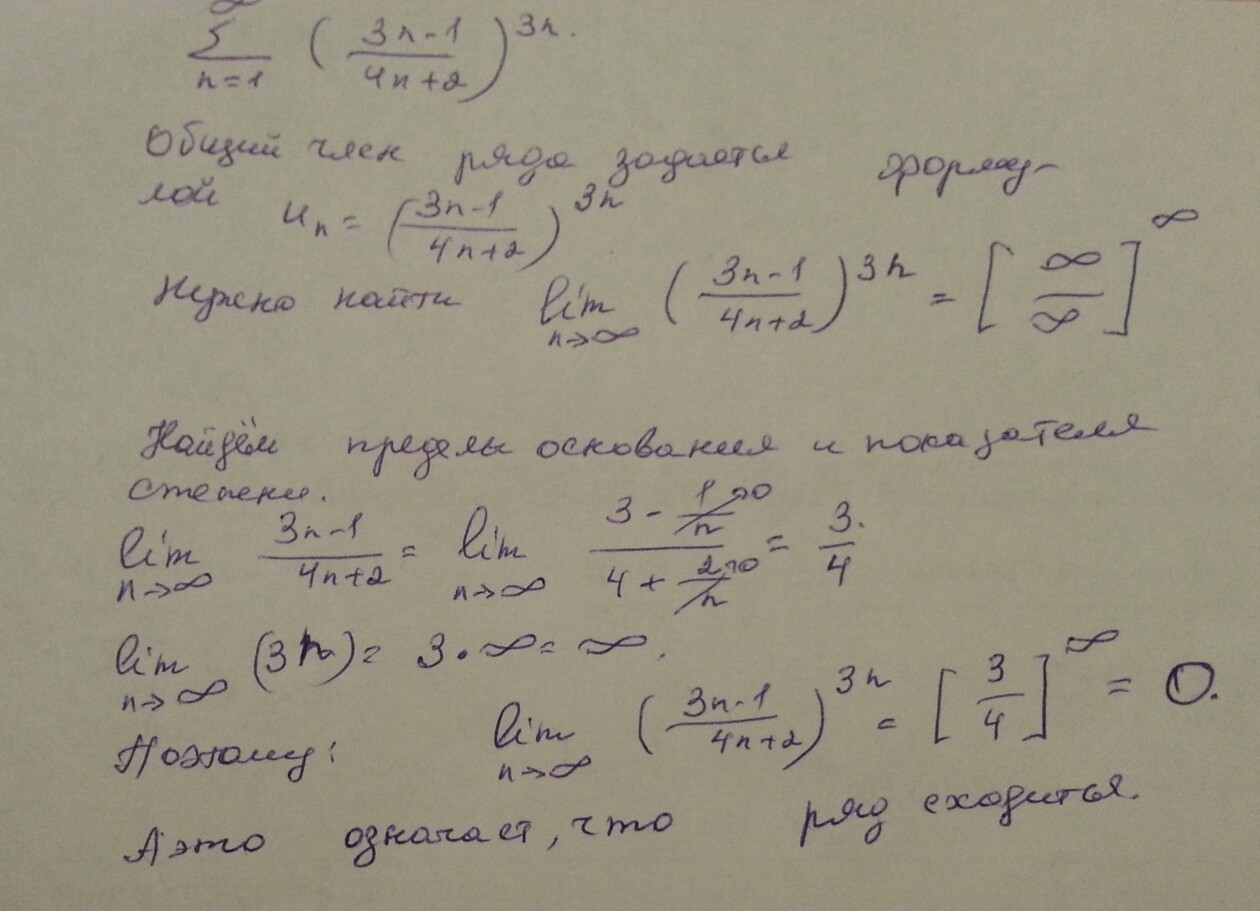 ∞
∑ ( (3n-1)/(4n+2) )^3n.
n=1
Общий член ряда задается форму-
лой u_n = ( (3n-1)/(4n+2) )^3n
Нужно найти lim n→∞ ( (3n-1)/(4n+2) )^3n = [ ∞/∞ ]^∞
Найдём пределы основания и показателя
степени.
lim n→∞ (3n-1)/(4n+2) = lim n→∞ (3 - 1/n→0)/(4 + 2/n→0) = 3/4.
lim n→∞ (3n) = 3·∞ = ∞.
Поэтому: lim n→∞ ( (3n-1)/(4n+2) )^3n = [ 3/4 ]^∞ = 0.
А это означает, что ряд сходится.